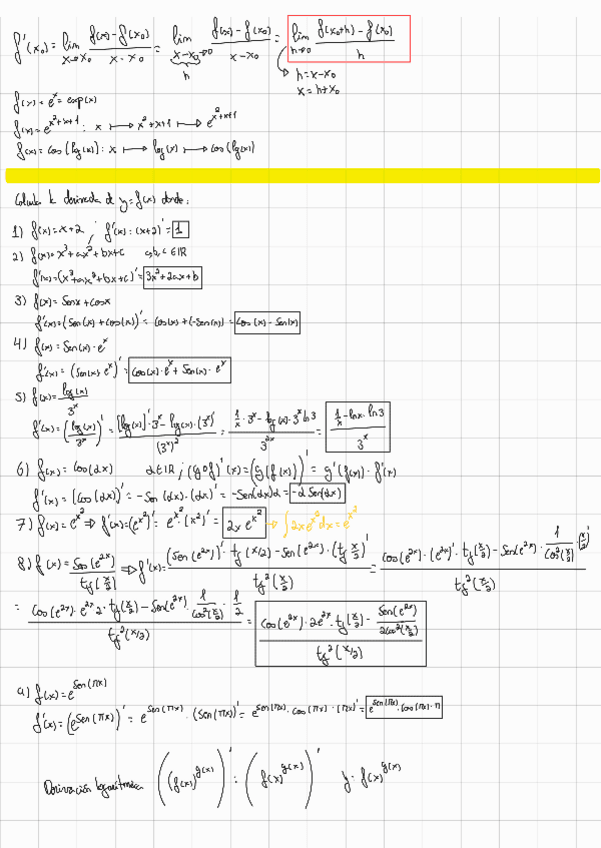 f'(x₀) = lim_{x→x₀} (f(x) - f(x₀))/(x - x₀) = lim_{x-x₀→0} (f(x) - f(x₀))/(x - x₀) = lim_{h→0} (f(x₀+h) - f(x₀))/h
h
h = x - x₀
x = h + x₀
f(x) = eˣ = exp(x)
f(x) = e^{x²+x+1} : x ⟼ x²+x+1 ⟼ e^{x²+x+1}
f(x) = cos(log(x)) : x ⟼ log(x) ⟼ cos(lg(x))
Calcula la derivada de y = f(x) donde:
1) f(x) = x+2 ; f'(x) = (x+2)' = 1
2) f(x) = x³ + ax² + bx + c a, b, c ∈ ℝ
f'(x) = (x³ + ax² + bx + c)' = 3x² + 2ax + b
3) f(x) = Senx + cosx
f'(x) = (Sen(x) + cos(x))' = cos(x) + (-Sen(x)) = cos(x) - Sen(x)
4) f(x) = Sen(x) · eˣ
f'(x) = (Sen(x) · eˣ)' = cos(x) · eˣ + Sen(x) · eˣ
5) f(x) = log(x)/3ˣ
f'(x) = (log(x)/3ˣ)' = ([log(x)]' · 3ˣ - log(x) · (3ˣ)')/(3ˣ)² = (1/x · 3ˣ - lg(x) · 3ˣ ln3)/3²ˣ = (1/x - lnx · ln3)/3ˣ
6) f(x) = cos(αx) α ∈ ℝ ; (g∘f)'(x) = (g(f(x)))' = g'(f(x)) · f'(x)
f'(x) = (cos(αx))' = -Sen(αx) · (αx)' = -Sen(αx)α = -α Sen(αx)
7) f(x) = e^{x²} ⇒ f'(x) = (e^{x²})' = e^{x²} · (x²)' = 2x e^{x²} → ∫2x e^{x²} dx = e^{x²}
8) f(x) = Sen(e²ˣ)/tg(x/2) ⇒ f'(x) = ((Sen(e²ˣ))' · tg(x/2) - Sen(e²ˣ) · (tg x/2)')/tg²(x/2) = (cos(e²ˣ) · (e²ˣ)' · tg(x/2) - Sen(e²ˣ) · 1/cos²(x/2) · (x/2)')/tg²(x/2)
= (cos(e²ˣ) · e²ˣ 2 · tg(x/2) - Sen(e²ˣ) · 1/cos²(x/2) · 1/2)/tg²(x/2) = (cos(e²ˣ) · 2e²ˣ · tg(x/2) - Sen(e²ˣ)/2cos²(x/2))/tg²(x/2)
9) f(x) = e^{Sen(πx)}
f'(x) = (e^{Sen(πx)})' = e^{Sen(πx)} · (Sen(πx))' = e^{Sen(πx)} · cos(πx) · (πx)' = e^{Sen(πx)} · cos(πx) · π
Derivación logarítmica ((f(x))^{g(x)})' = (f(x)^{g(x)})' y = f(x)^{g(x)}